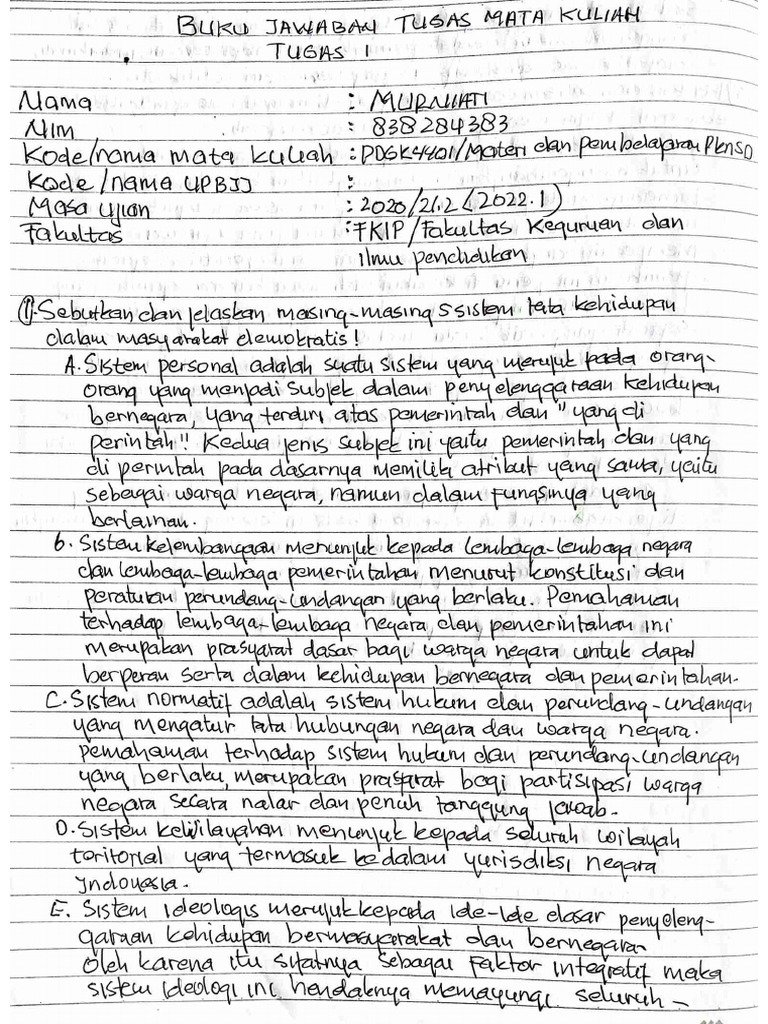 BUKU JAWABAN TUGAS MATA KULIAH
TUGAS 1
Nama : MURNIATI
NIM : 838284383
Kode/nama mata kuliah : PDGK4401/Materi dan pembelajaran PknSD
Kode/nama UPBJJ :
Masa ujian : 2020/21.2 (2022.1)
Fakultas : FKIP/Fakultas Keguruan dan
ilmu pendidikan
1. Sebutkan dan jelaskan masing-masing 5 sistem tata kehidupan
dalam masyarakat demokratis!
A. Sistem personal adalah suatu sistem yang merujuk pada orang-
orang yang menjadi subjek dalam penyelenggaraan kehidupan
bernegara, yang terdiri atas pemerintah dan "yang di
perintah". Kedua jenis subjek ini yaitu pemerintah dan yang
di perintah pada dasarnya memiliki atribut yang sama, yaitu
sebagai warga negara, namun dalam fungsinya yang
berlainan.
b. Sistem kelembangaan menunjuk kepada lembaga-lembaga negara
dan lembaga-lembaga pemerintahan menurut konstitusi dan
peraturan perundang-undangan yang berlaku. Pemahaman
terhadap lembaga-lembaga negara, dan pemerintahan ini
merupakan prasyarat dasar bagi warga negara untuk dapat
berperan serta dalam kehidupan bernegara dan pemerintahan.
C. Sistem normatif adalah sistem hukum dan perundang-undangan
yang mengatur tata hubungan negara dan warga negara.
pemahaman terhadap sistem hukum dan perundang-undangan
yang berlaku, merupakan prasyarat bagi partisipasi warga
negara secara nalar dan penuh tanggung jawab.
D. Sistem kewilayahan menunjuk kepada seluruh wilayah
toritorial yang termasuk kedalam yurisdiksi negara
Indonesia.
E. Sistem ideologis merujuk kepada ide-ide dasar penyeleng-
garaan kehidupan bermasyarakat dan bernegara.
Oleh karena itu sifatnya sebagai faktor integratif maka
sistem ideologi ini hendaknya memayungi seluruh -